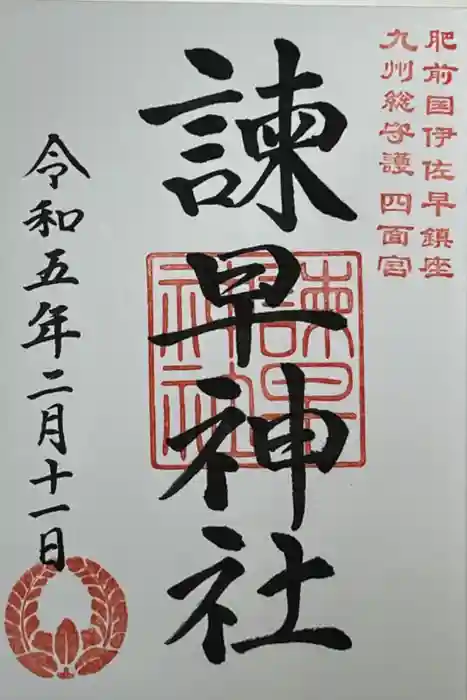 肥前国伊佐早鎮座
九州総守護 四面宮
諫早神社
諫早神社
令和五年二月十一日